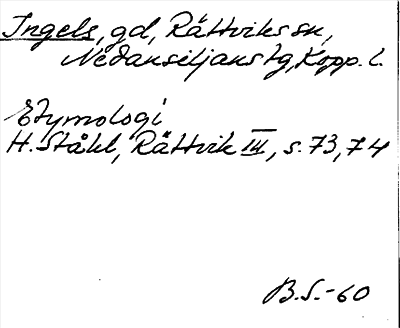 Ingels, gd, Rättviks sn,
Nedansiljans tg, Kopp. l.
Etymologi
H. Ståhl, Rättvik III, s. 73, 74
B.S.-60